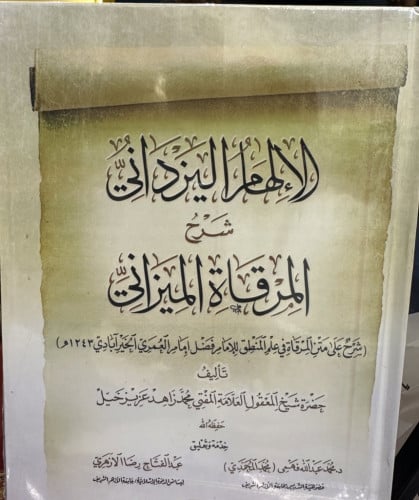 الإلهام اليزداني
شرح
المرقاة الميزاني
(شرح على متن المرقاة في علم المنطق للإمام فضل إمام العمري الخيرآبادي ١٢٤٣هـ)
تأليف
حضرة شيخ المعقول العلامة المفتي محمد زاهد عزيز خيل
حفظه الله
خدمة وتعليق
د. محمد عبد الله فهيمي (محمد المجددي)
عبد الفتاح رضا الأزهري